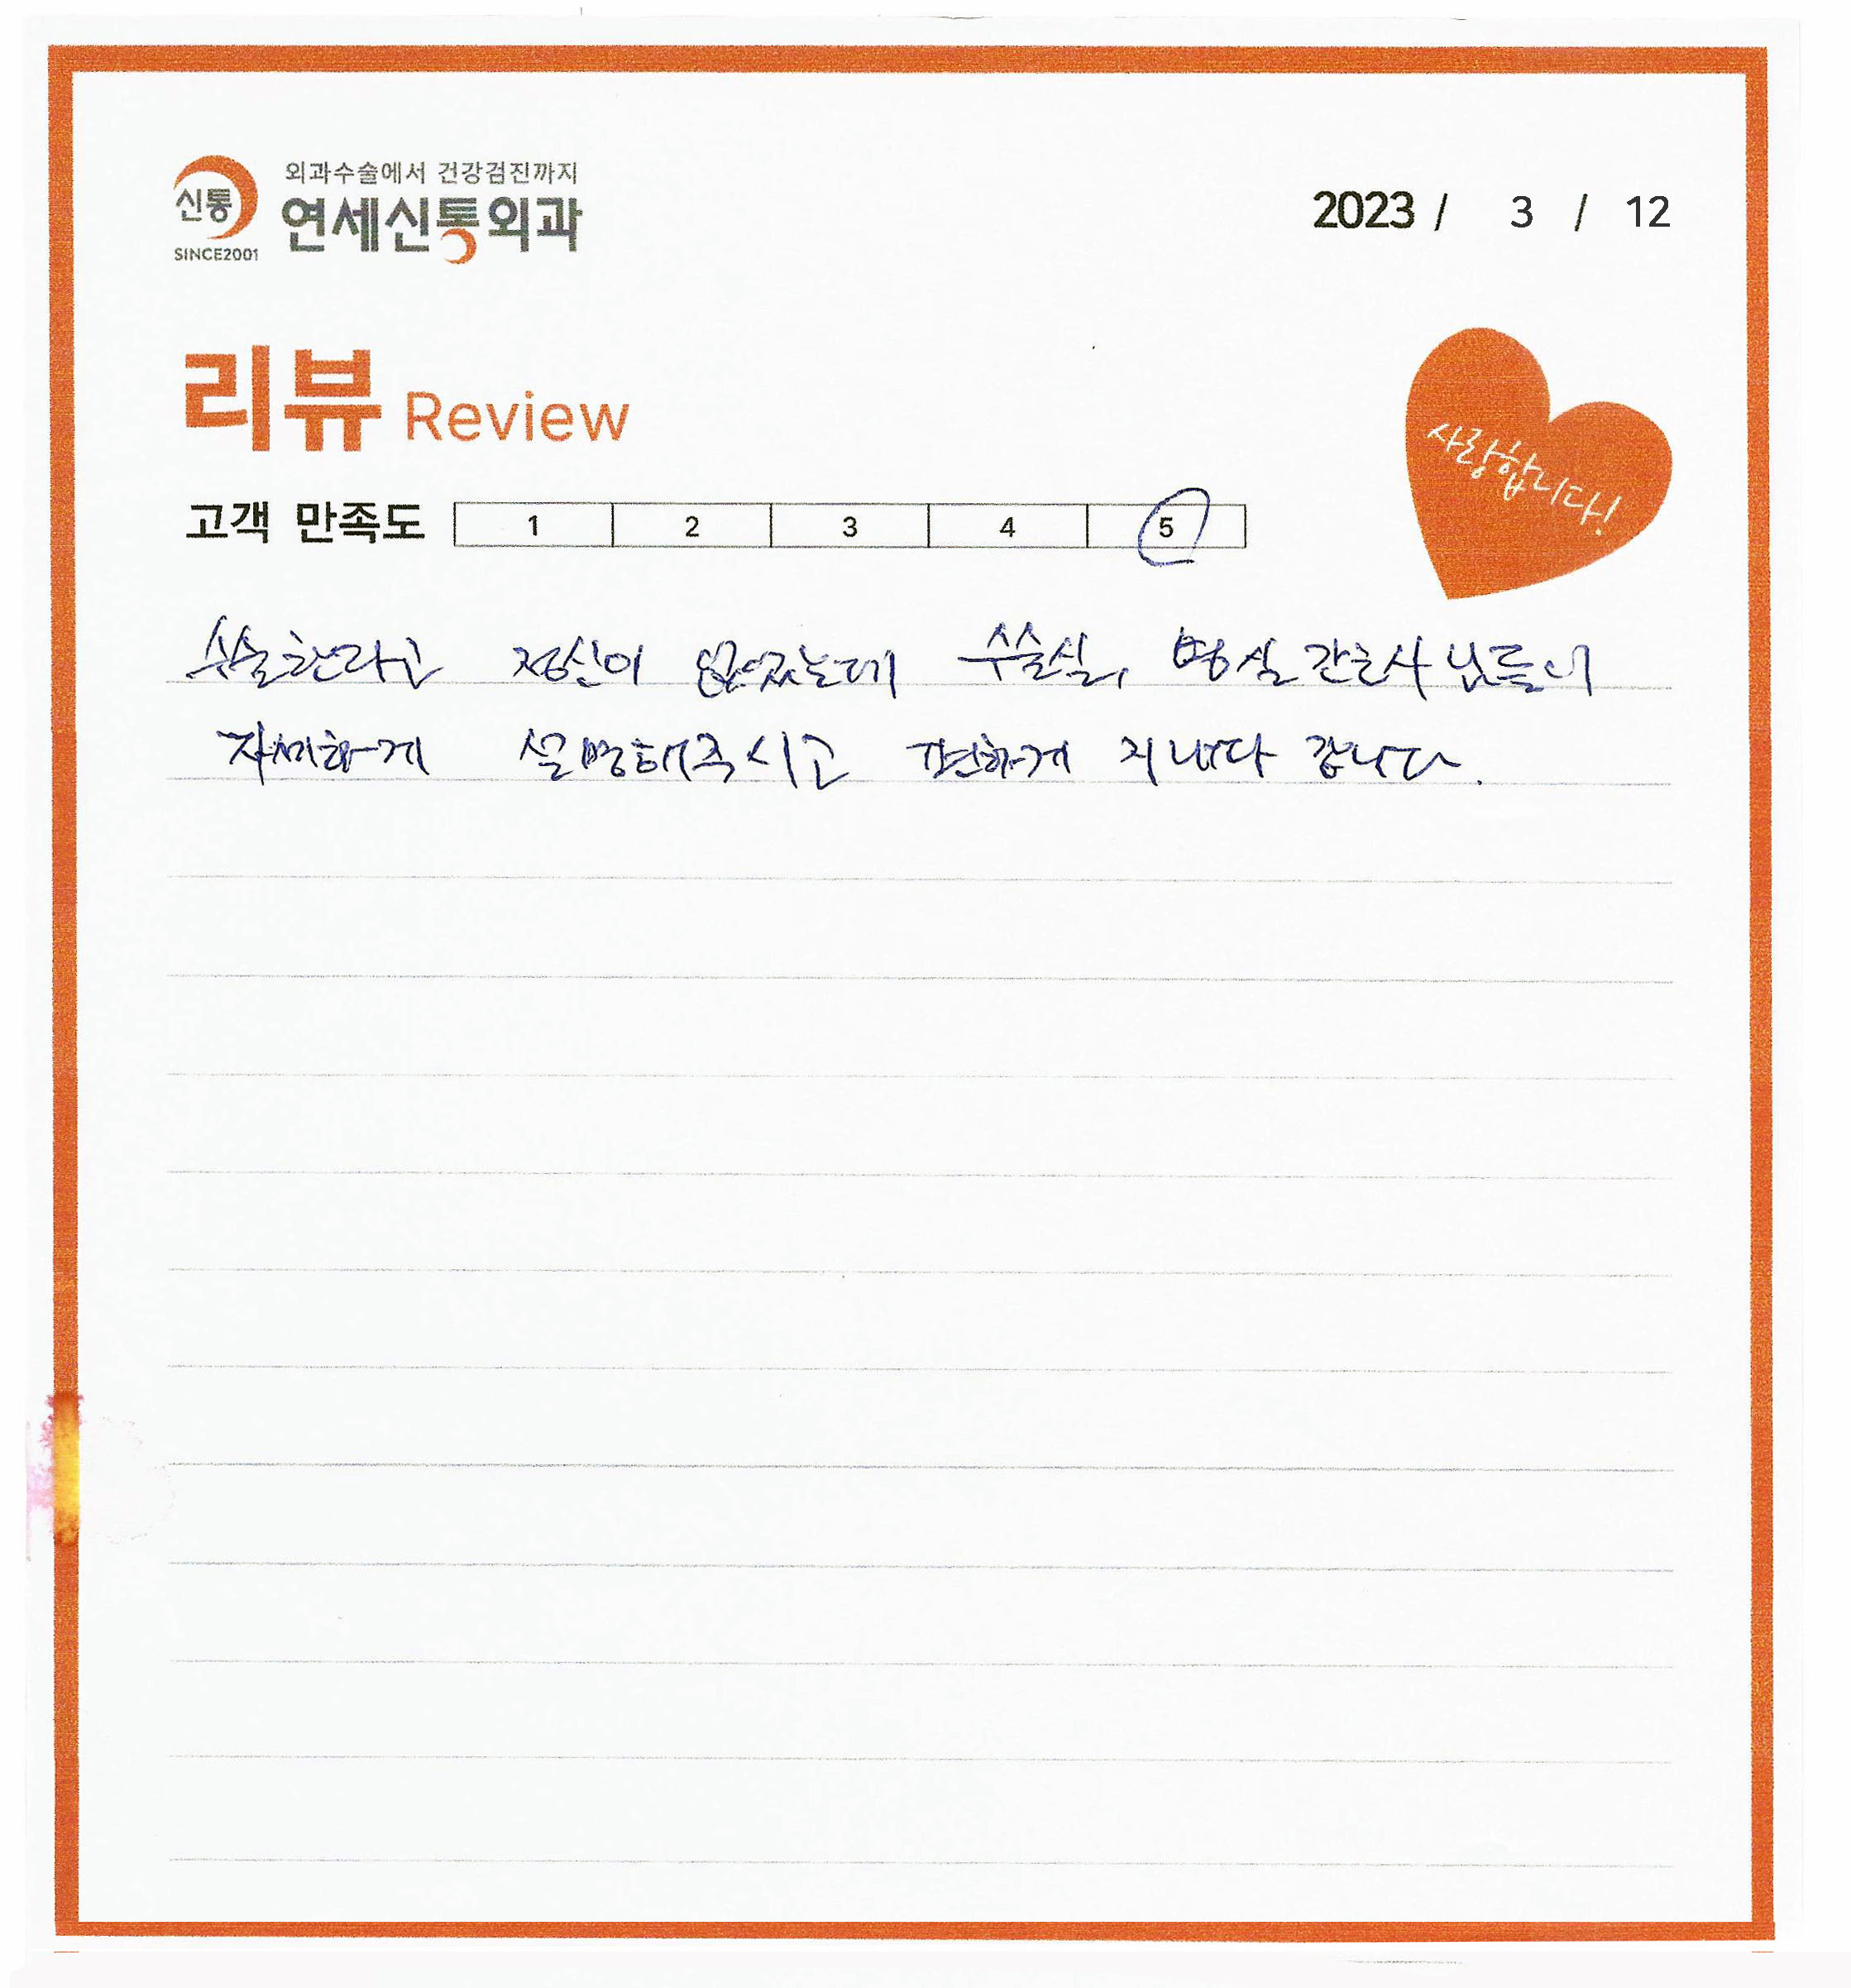 외과수술에서 건강검진까지
신통 연세신통외과
SINCE2001
2023 / 3 / 12
리뷰 Review
사랑합니다!
고객 만족도 1 2 3 4 5
수술한라고 정신이 없었는데 수술실, 병실 간호사님들이
자세하게 설명해주시고 편하게 지내다 갑니다.